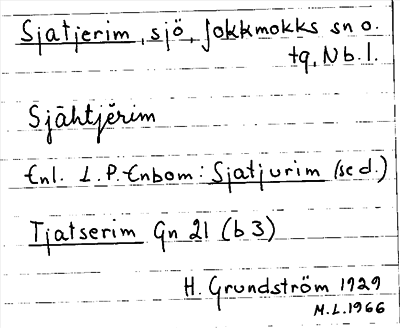 Sjatjerim, sjö, Jokkmokks sn o.
tg, Nb.l.
Sjāhtjĕrim
Enl. L.P. Enbom: Sjatjurim (se d.)
Tjatserim Gn 21 (b 3)
H. Grundström 1929
M.L. 1966